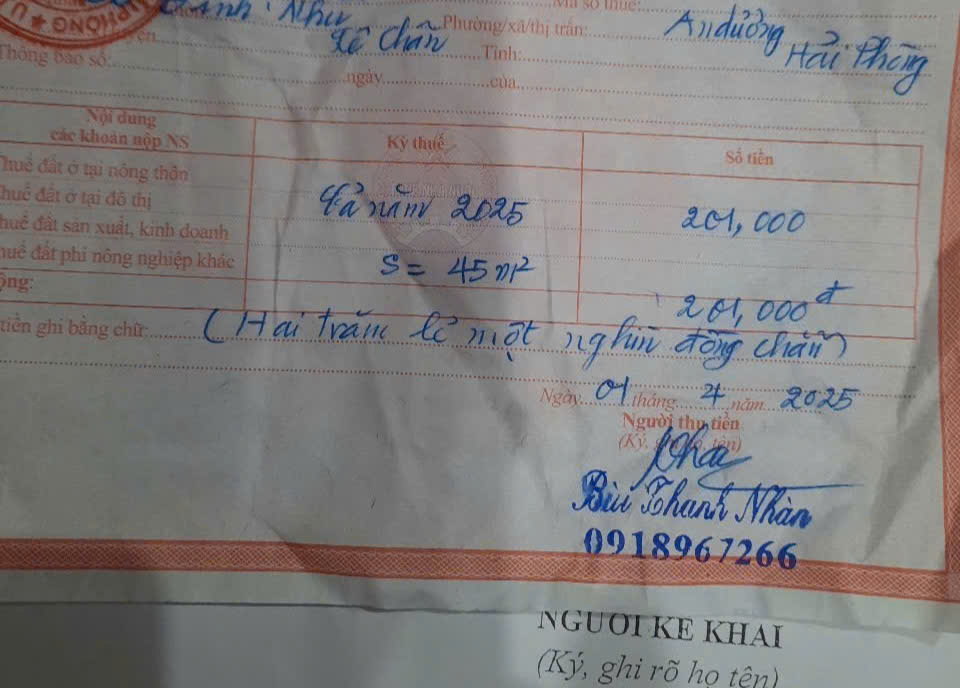 Mã số thuế:
Phường/xã/thị trấn: An dương
Lê Chân Tỉnh: Hải Phòng
Thông báo số: ngày của
Nội dung các khoản nộp NS Kỳ thuế Số tiền
Thuế đất ở tại nông thôn
Thuế đất ở tại đô thị Cả năm 2025 201,000
huế đất sản xuất, kinh doanh
huế đất phi nông nghiệp khác S = 45 m²
ộng: 201,000đ
tiền ghi bằng chữ: (Hai trăm lẻ một nghìn đồng chẵn)
Ngày 01 tháng 4 năm 2025
Người thu tiền
(Ký, ghi họ, tên)
Bùi Thanh Nhàn
0918967266
NGƯỜI KÊ KHAI
(Ký, ghi rõ họ tên)